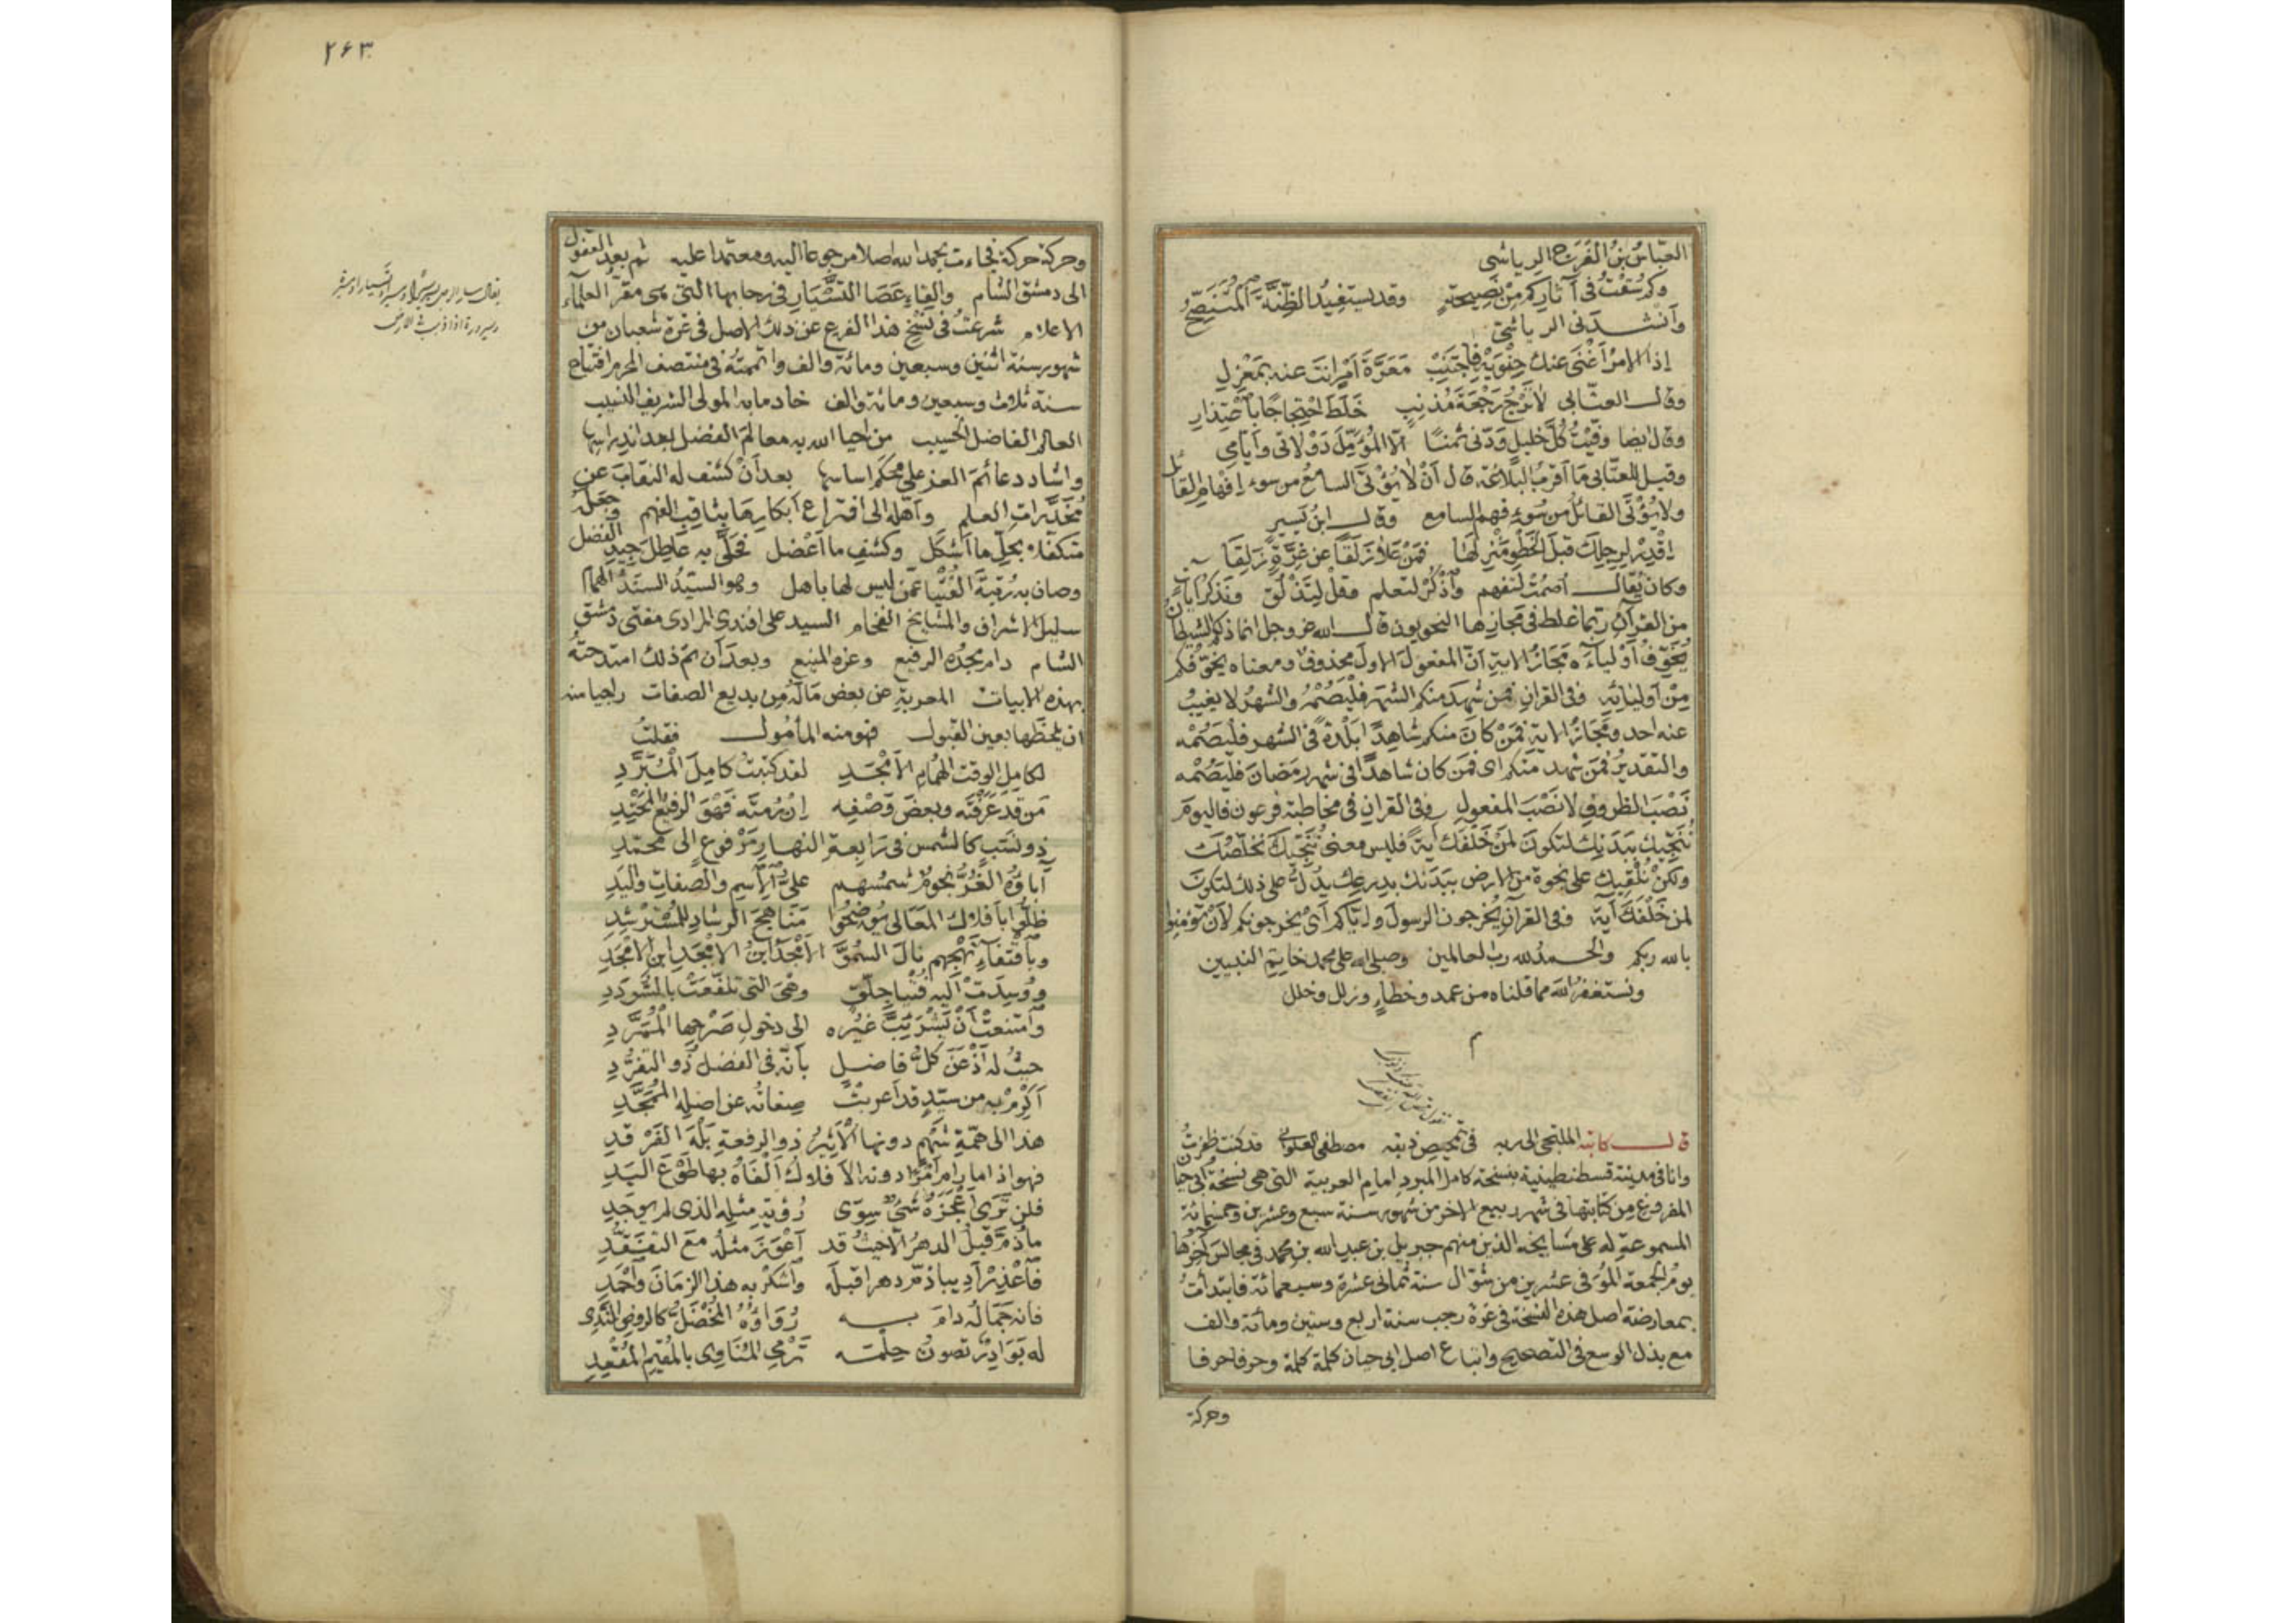 العبّاس بن الفَرَج الرياشى
وكم سُقْتُ فى آثاركم مِنْ نَصِيحةٍ وقد يستفيدُ الظِّنَّةَ المُتَنَصِّحُ
وأنشدنى الرياشى
إذا الامرُ أغْنَى عنك حِنْوَيْهِ فاجتَنِبْ مَعَرَّةَ أمْرٍ انتَ عنه بمَعْزِلِ
وقال العتّابى لا تَرْجُ رَجْعَةَ مُذنِبٍ خَلَطَ احْتِجاجًا باعْتِذارِ
وقال ايضا وفَيْتُ كُلَّ خليلٍ وَدّنى ثمنًا الّا المُؤَمِّلَ دَوْلاتى وأيّامى
وقيل للعتّابى ما أقربُ البلاغة قال أنْ لا يُؤْتَى السامعُ من سوء إفهامِ القائل
ولا يُؤْتَى القائلُ من سُوءِ فهم السامع وقال ابنُ يَسيرٍ
اقْدِرْ لرجلك قبلَ الخَطْوِ مَنْزِلَها فمَنْ عَلا زَلَقًا عن غِرّةٍ زَلِقَا
وكان يُقال اصمُتْ لتفهم وآذْكُرْ لتعلم وقلْ لِتَذْلُقَ ونَذكُر آياتٍ
من القرآنِ ربّما غلط فى مَجازِها النحويون قال الله عز وجل انما ذلكم الشيطانُ
يُخَوِّفُ أَوْلياءَه مَجَازُ الايةِ أنّ المفعولَ الاولَ محذوفٌ ومعناه يُخوِّفُكم
مِنْ أوليائِه وفى القرانِ فمن شهدَ منكم الشهرَ فلْيَصُمْه والشهرُ لا يغيبُ
عنه احد ومَجَازُ الاية فمَنْ كانَ منكم شاهِدًا بلدَهُ فى الشهر فليَصُمْه
والتقديرُ فمَن شهد منكم اى فمَن كان شاهدًا فى شهر رمَضان فليَصُمْه
نَصْبَ الظروفِ لا نَصْبَ المفعولِ وفى القرانِ فى مخاطبة فرعون فاليومَ
نُنَجِّيك ببَدَنِك لتكونَ لمَنْ خَلْفَك آيةً فليس معنى نُنَجِّيكَ نُخَلّصُك
ولكنْ نُلْقيك على نجوة من الارض ببَدَنك بدِرعك يدُلُّ على ذلك لتكونَ
لمن خَلْفَكَ آية وفى القرآنِ يُخرجون الرسولَ وايّاكم أىْ يخرجونكم لأنْ تؤمِنوا
بالله ربكم والحمدُ لله رب العالمين وصلى الله على محمد خاتِم النبيين
ونستغفرُ اللهَ مما قلناه من عمد وخطاءٍ وزلل وخلل
م
قال كاتبه الملتجى الى ربه فى تمحيص ذنبه مصطفى العلوانى قد كنت ظفِرْتُ
وانا فى مدينة قسطنطينية بنسخة كامل المبرد امام العربية التى هى نسخةُ ابى حيان
المفروغ من كتابتها فى شهر ربيع الاخر من شهور سنة سبع وعشرين وخمسمائة
المسموعةِ له على مشايخه الذين منهم جبريل بن عبد الله بن محمد فى مجالسَ آخرُها
يومُ الجمعة المُوَفى عشرين من شوّال سنة ثمانى عشرة وسبعمائة فابتدأتُ
بمعارضة اصل هذه النسخة فى غرة رجب سنة اربع وستين ومائة والف
مع بذل الوسع فى التصحيح واتباع اصل ابى حيان كلمة كلمة وحرفا حرفا
وحركة
٢٦٣
وحركة حركة فجاءت بحمد الله اصلا مرجوعا اليه ومعتمدا عليه ثم بعد القفول
الى دمشق الشام والقاءِ عَصَا التَّسْيَارِ فى رحابها التى هى مقرّ العلماء
الاعلام شرعتُ فى نَسْخِ هذا الفرع عن ذلك الاصل فى غرة شعبان من
شهور سنة اثنين وسبعين ومائة والف واتممتُه فى منتصف المحرم افتتاح
سنة ثلاث وسبعين ومائة والف خادما به المولى الشريف النسيب
العالم الفاضل الحسيب من احيا الله به معالمَ الفضل بعد اندراسها
واشاد دعائمَ العز على محكَم اساسها بعد أنْ كشف له النقابَ عن
مُخَدَّراتِ العلم وأهّله الى افتراع أبكارِها بثاقب الفهم وجعله
متكفلا بحلّ ما أشكل وكشفِ ما أعْضل فحَلّى به عاطِلَ جِيدِ الفضل
وصان به رُتبةَ الفُتْيا عمّن ليس لها باهل وهو السيّدُ السنَدُ الهمام
سليل الاشراف والمشايخ الفخام السيد على افندى المرادى مفتى دمشق
الشام دام مجدُه الرفيع وعزه المنيع وبعد أن تم ذلك امتدحتُه
بهذه الابيات المعربةِ عن بعض مَالَهُ من بديع الصفات راجيا منه
ان يلحَظها بعين القبول فهو منه المأمول فقلتُ
لكاملِ الوقت الهُمامِ الأَمْجَدِ لقد كتبتُ كامِلَ المُبَرَّدِ
مَن قد عَرَفْتَه وبعضَ وَصْفِه إنْ رُمتَه فَهْوَ الرفيعُ المَحْتِدِ
ذو نَسَبٍ كالشمس فى رَابعةِ النهارِ مَرْفوعٍ الى محمّدِ
آباؤُه الغُرُّ نجومٌ شمسُهم علىُّ الاسمِ والصفاتِ واليَدِ
ظلُّوا بأفلاك المعَالى يُوضِحُوا مَناهِجَ الرشادِ للمُسْتَرْشِدِ
وباقتفاءِ نَهْجِهم نالَ السُّمُوَّ الأمْجَدُ ابنُ الامْجَدِ ابنِ الامْجَدِ
ووُسِّدَتْ اليه فُتْيا جِلّقٍ وهْىَ التى تلفّعَتْ بالسُّودَدِ
وامتنعتْ أنْ تَسْتَبِيَّ غيرُه الى دخولِ صَرْحِها المُمَرَّدِ
حيثُ له أذْعَنَ كلُّ فاضلٍ بأنّه فى الفضلِ ذو التفَرُّدِ
أَكْرِمْ به من سيّدٍ قد أعربتْ صِفاتُه عن اصلِه المُمَجَّدِ
هذا الى هِمّةِ شَهْمٍ دونها الأثيرُ ذو الرفعةِ بَلْهَ الفَرْقدِ
فهو اذا ما رام أمْرًا دونه الافلاكُ ألْفَاهُ بها طَوْعَ اليَدِ
فلن ترى أعْجَزَهُ شىءٌ سِوَى رُؤيةِ مثلِه الذى لم يوجَدِ
ما ذُمَّ قبلُ الدهرُ الّا حيثُ قد أعْوَزَ مثلُه مع التفقُّدِ
فاعْذِرْ أديبا ذمّ دهرا قبلَه واشكرْ به هذا الزمانَ واحْمَدِ
فانه جَمَالُه دامَ به رُوَاؤُه المُخْضَلُّ كالروضِ النَّدِى
له بَوَادِرٌ تصونُ حِلمَه تَرْمى المُنَاوِى بالمُقيمِ المُقْعِدِ